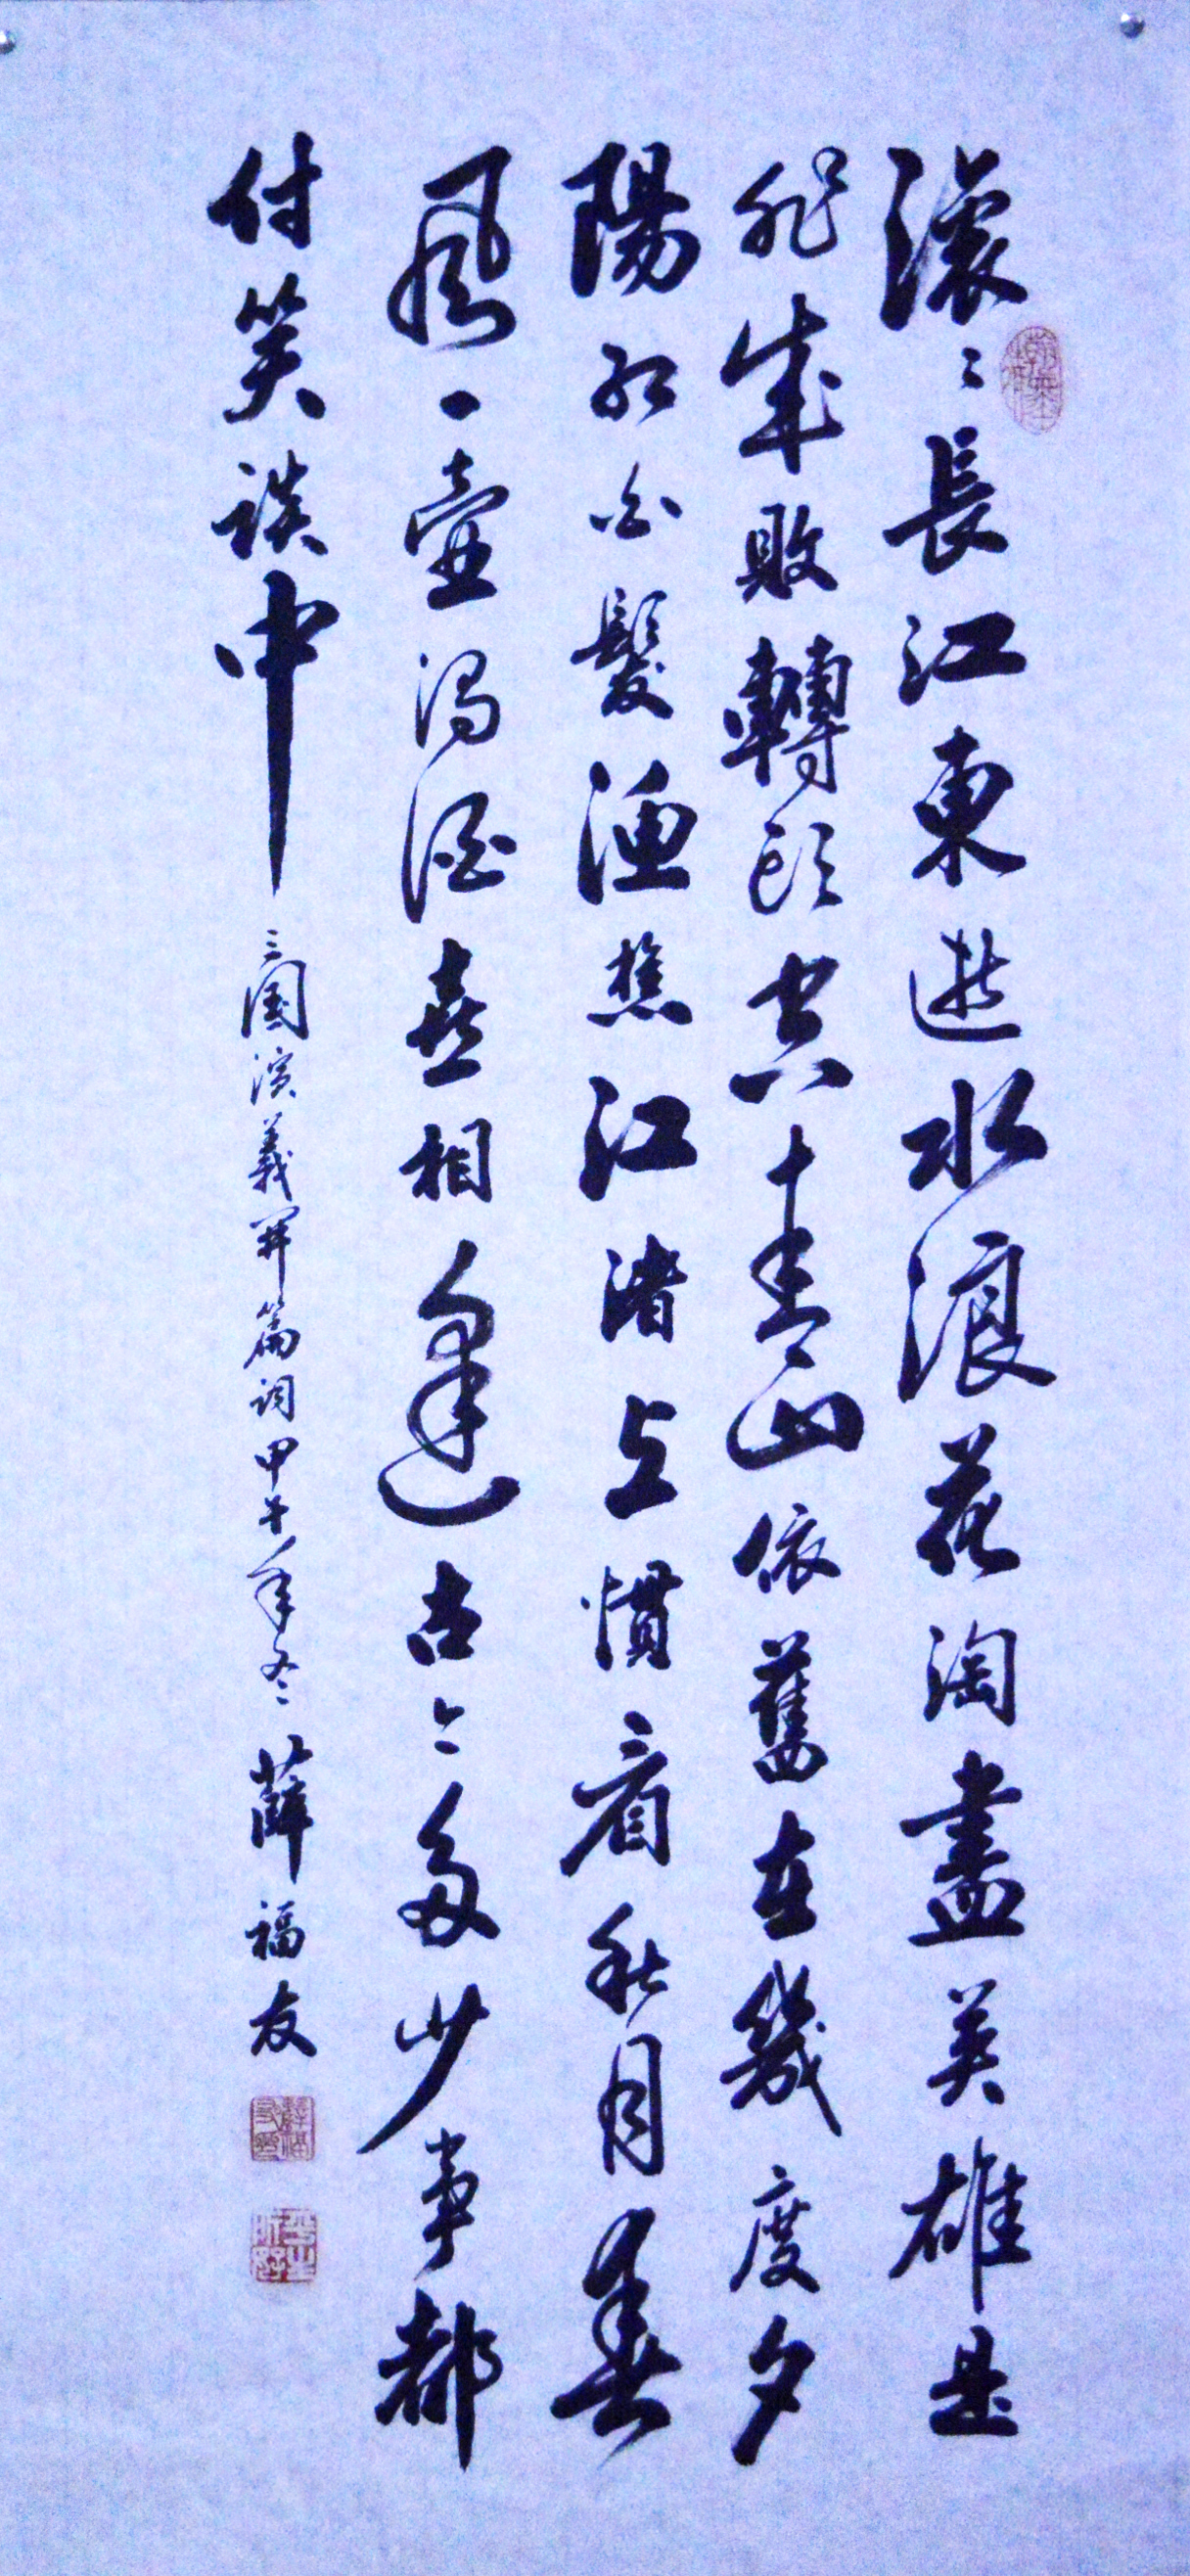 滾〻長江東逝水浪花淘盡英雄是
非成敗轉頭空青山依舊在幾度夕
陽紅白髮漁樵江渚上慣看秋月春
風一壺濁酒喜相逢古今多少事都
付笑談中 三國演義開篇詞甲午年冬 薛福友